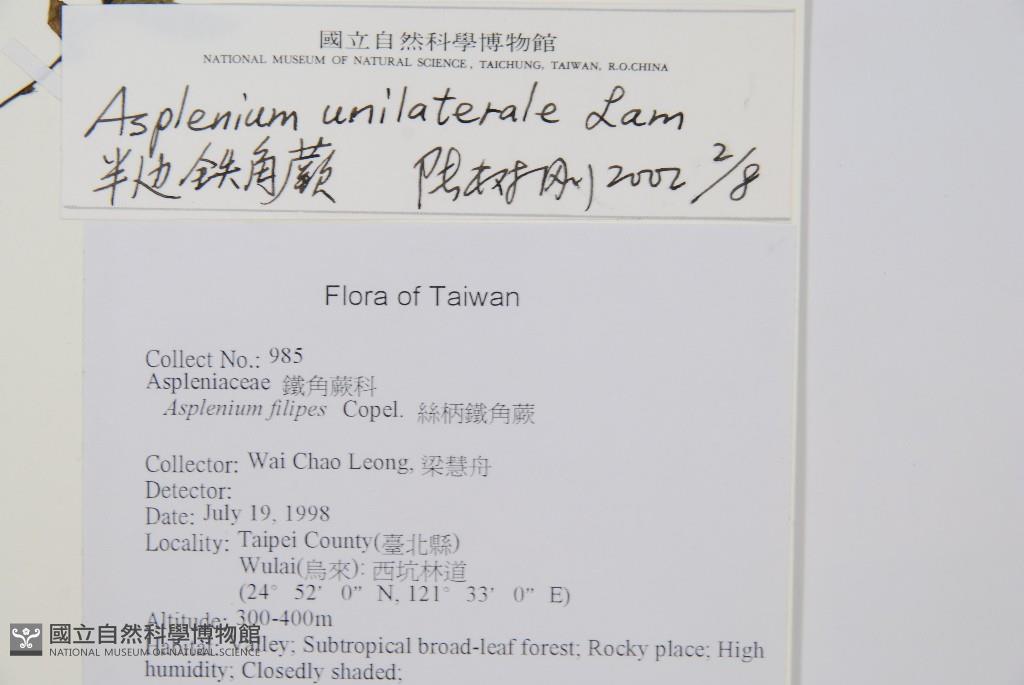 國立自然科學博物館
NATIONAL MUSEUM OF NATURAL SCIENCE, TAICHUNG, TAIWAN, R.O.CHINA
Asplenium unilaterale Lam
半边鉄角蕨 陸树刚 2002 2/8
Flora of Taiwan
Collect No.: 985
Aspleniaceae 鐵角蕨科
Asplenium filipes Copel. 絲柄鐵角蕨
Collector: Wai Chao Leong, 梁慧舟
Detector:
Date: July 19, 1998
Locality: Taipei County(臺北縣)
Wulai(烏來): 西坑林道
(24° 52' 0” N, 121° 33' 0” E)
Altitude: 300-400m
Habitat: Valley; Subtropical broad-leaf forest; Rocky place; High
humidity; Closedly shaded;
國立自然科學博物館
NATIONAL MUSEUM OF NATURAL SCIENCE